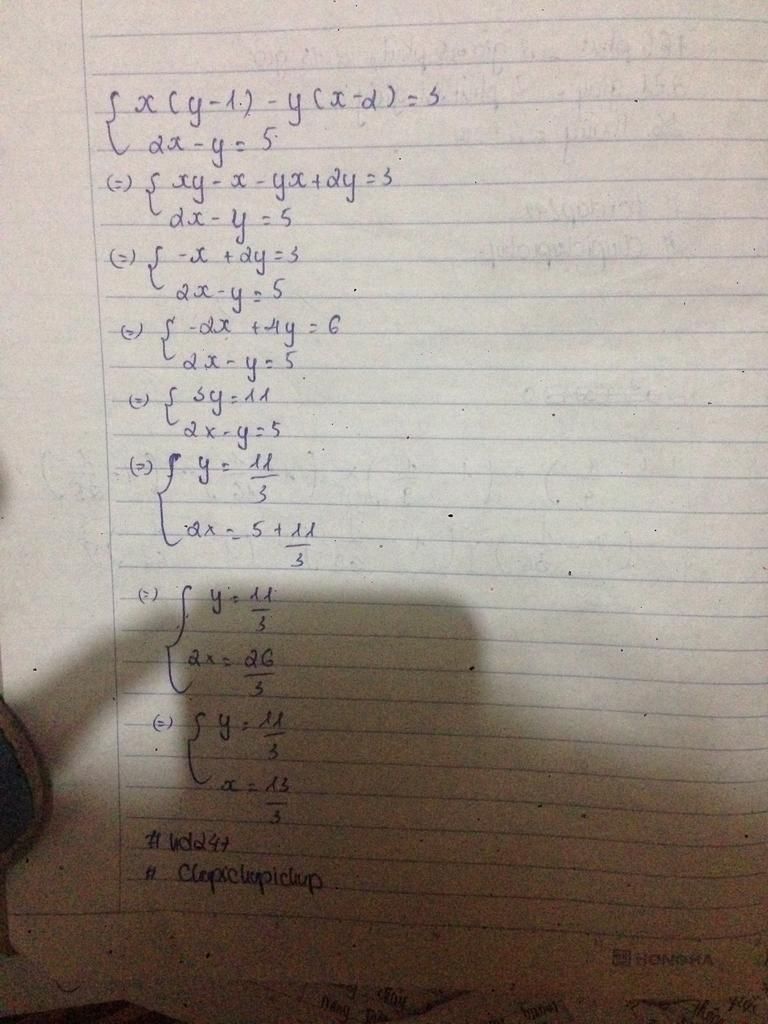 { x(y-1) - y(x-2) = 3
2x - y = 5
(=) { xy - x - yx + 2y = 3
2x - y = 5
(=) { -x + 2y = 3
2x - y = 5
(=) { -2x + 4y = 6
2x - y = 5
(=) { 3y = 11
2x - y = 5
(=) { y = 11/3
2x = 5 + 11/3
(=) { y = 11/3
2x = 26/3
(=) { y = 11/3
x = 13/3
# hd247
# Chupschupichup
HONGHA